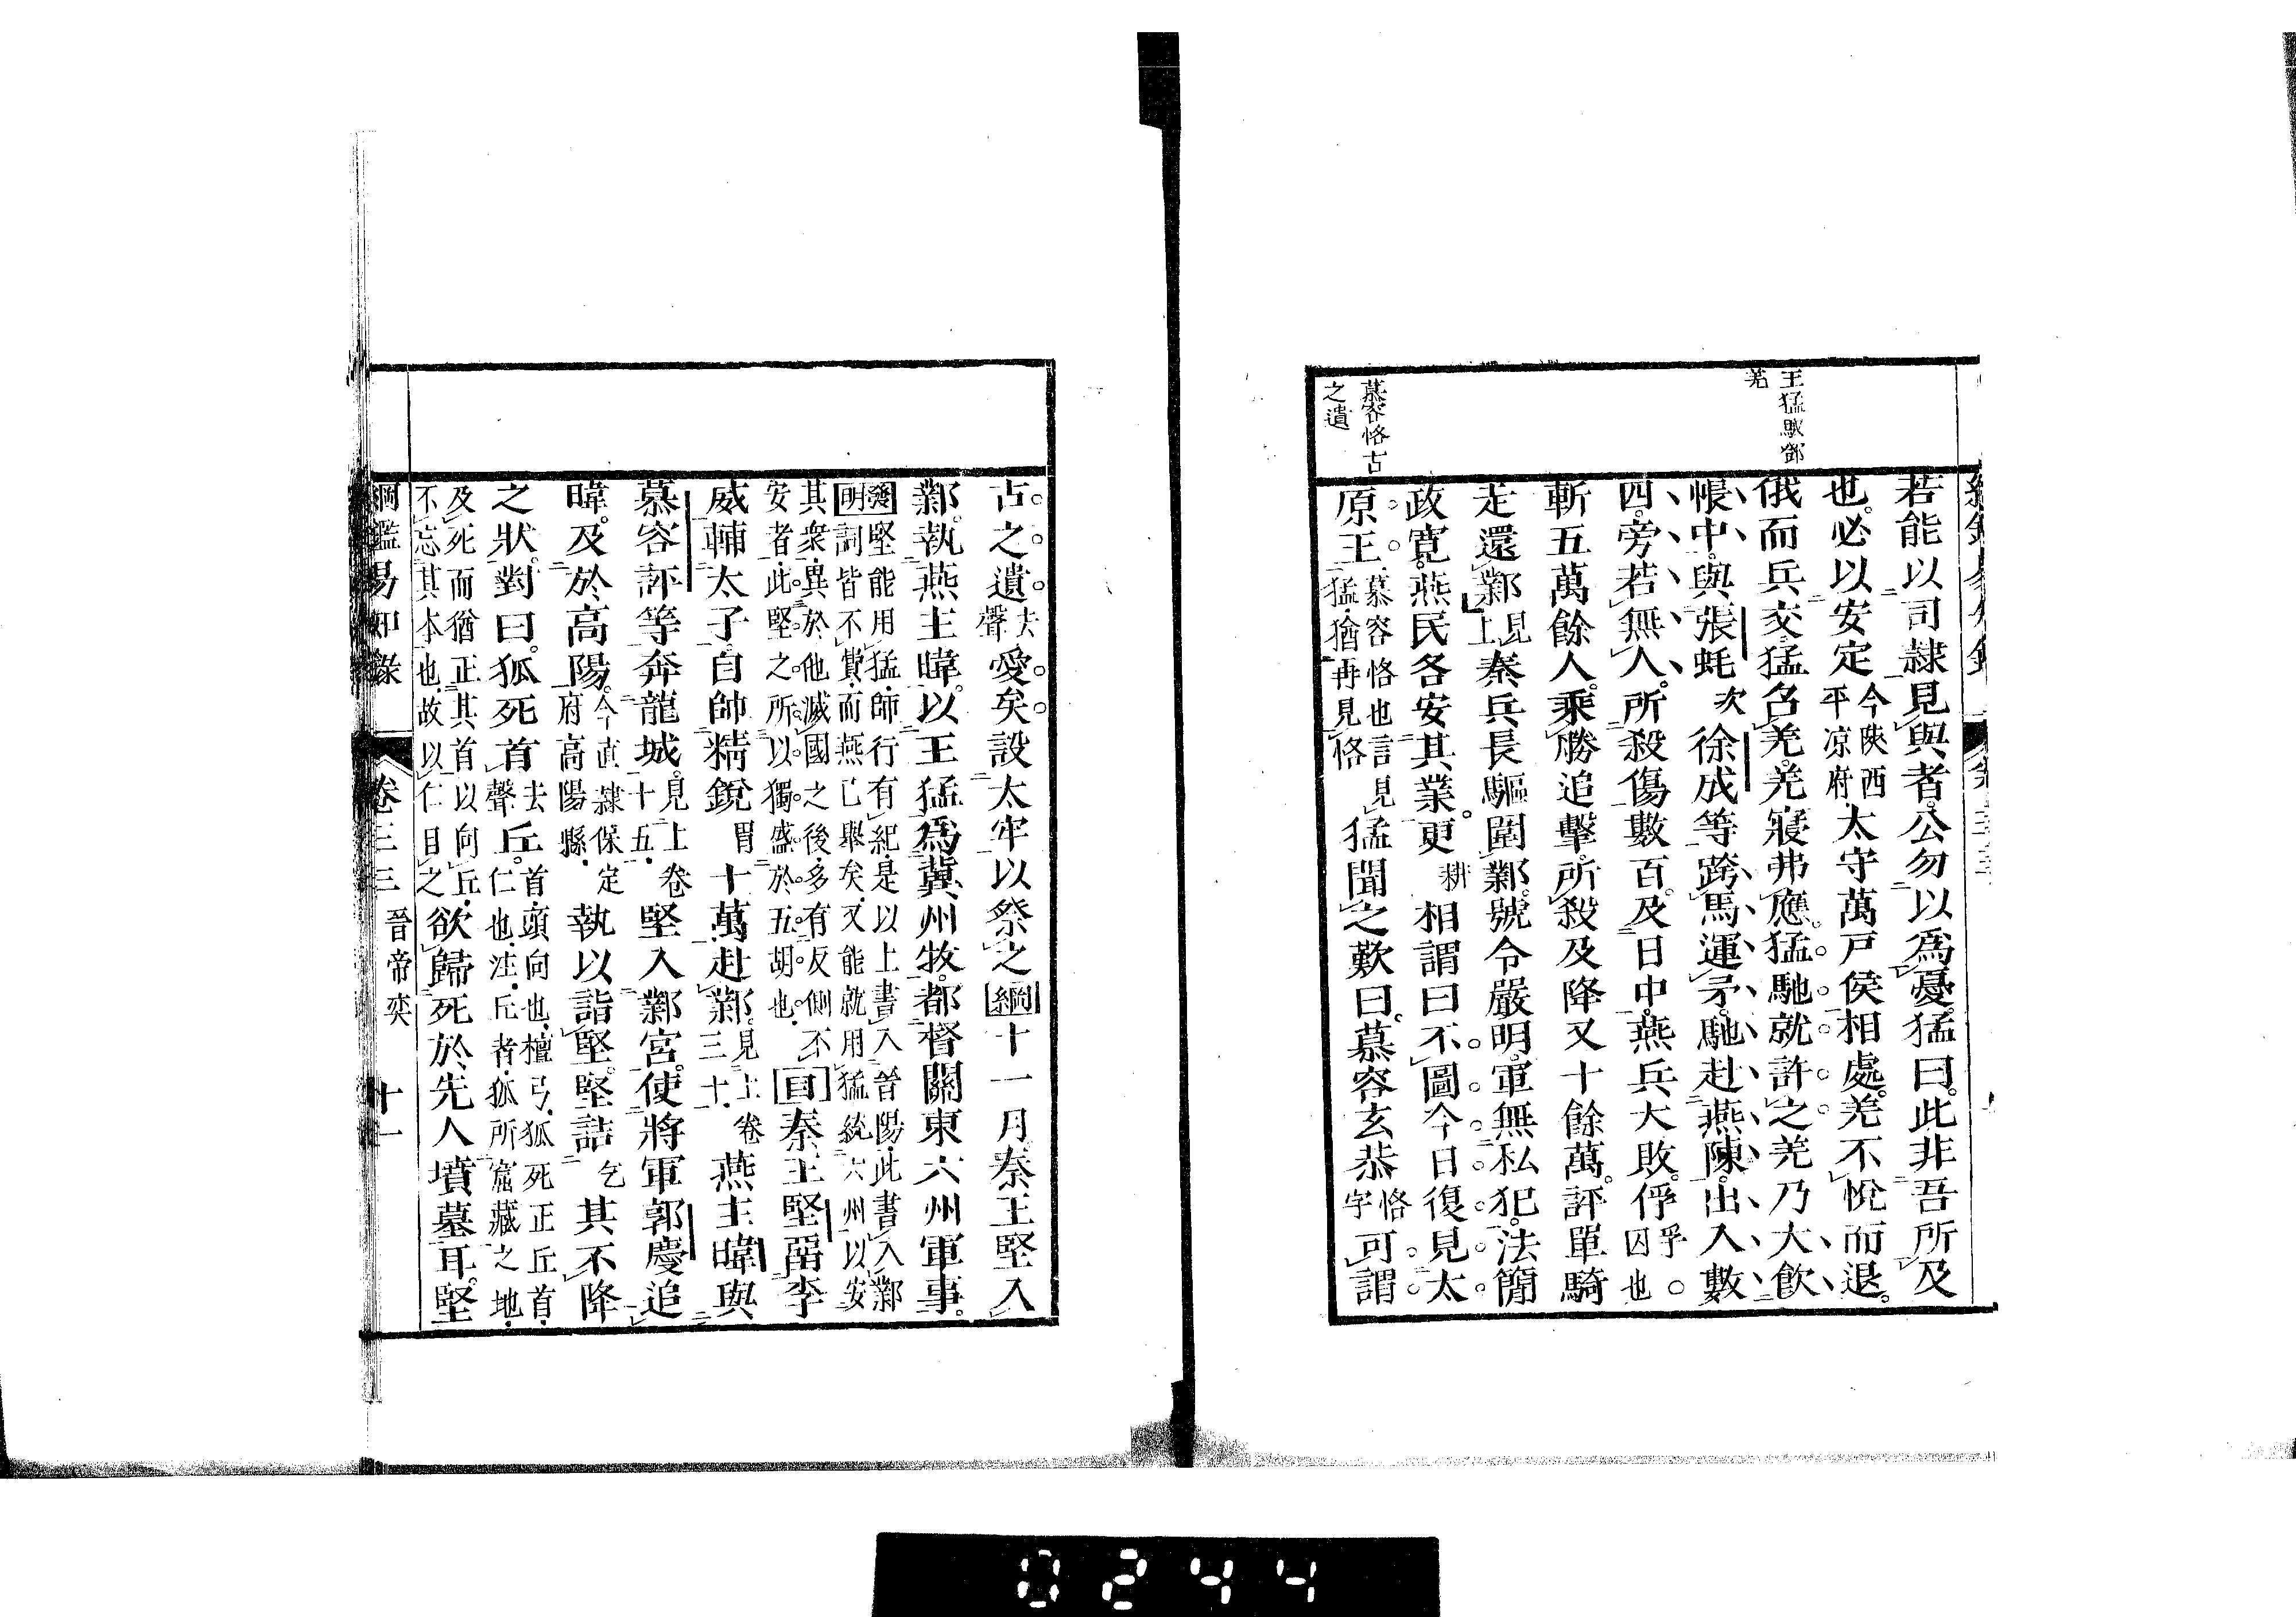 王猛馭鄧
羌
慕容恪古
之遺
若能以司隸見與者公勿以爲憂猛曰此非吾所及
也必以安定今陝西平凉府太守萬戸侯相處羌不悅而退
俄而兵交猛召羌羌寢弗應猛馳就許之羌乃大飲
帳中與張蚝次徐成等跨馬運矛馳赴燕陳出入數
四旁若無人所殺傷數百及日中燕兵大敗俘孚囚也
斬五萬餘人乘勝追擊所殺及降又十餘萬評單騎
走還鄴見上秦兵長驅圍鄴號令嚴明軍無私犯法簡
政寬燕民各安其業更耕相謂曰不圖今日復見太
原王慕容恪也言見猛猶再見恪猛聞之歎曰慕容玄恭恪字可謂
古之遺去聲愛矣設太牢以祭之綱十一月秦王堅入
鄴執燕主暐以王猛爲冀州牧都督關東六州軍事
發明堅能用猛師行有紀是以上書入晉陽此書入鄴詞皆不貲而燕已舉矣又能就用猛統六州以安
其衆異於他滅國之後多有反側不安者此堅之所以獨盛於五胡也目秦王堅畱李
威輔太子自帥精銳胃十萬赴鄴見上卷三十燕主暐與
慕容評等奔龍城見上卷十五堅入鄴宮使將軍郭慶追
暐及於高陽今直隸保定府高陽縣執以詣堅堅詰乞其不降
之狀對曰狐死首去聲丘首頭向也檀弓狐死正丘首仁也注丘者狐所窟藏之地
及死而猶正其首以向丘不忘其本也故以仁目之欲歸死於先人墳墓耳堅
綱鑑易知錄 卷三三 晉帝奕 十一
0244